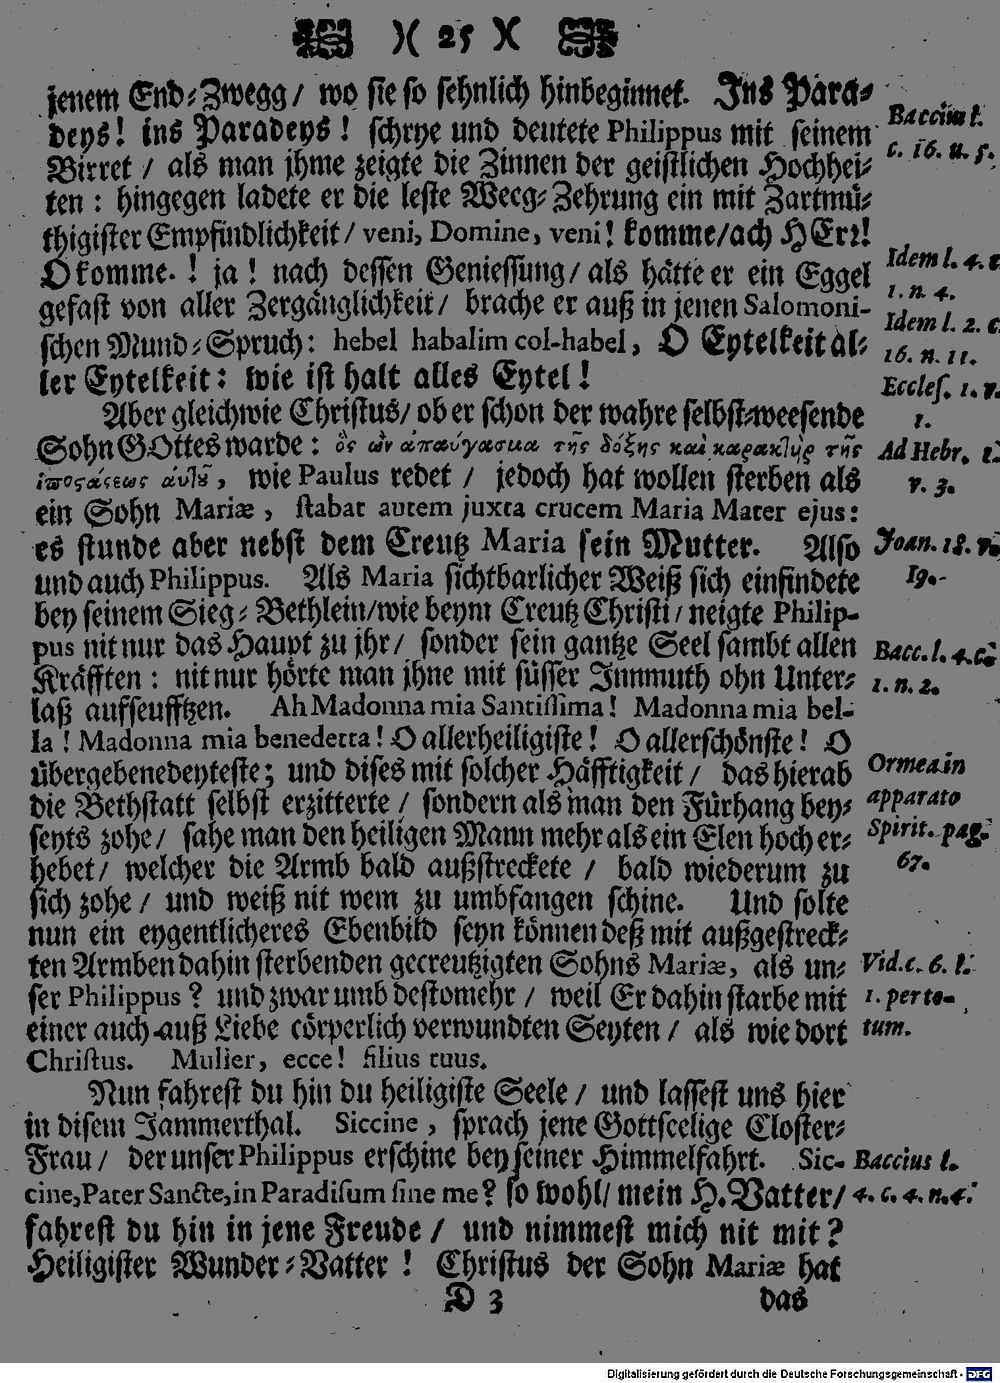 )( 25 )(
jenem End-Zwegg/ wo sie so sehnlich hinbeginnet. Ins Para-
deys! ins Paradeys! schrye und deutete Philippus mit seinem
Birret / als man jhme zeigte die Zinnen der geistlichen Hochhei-
ten: hingegen ladete er die leste Weeg-Zehrung ein mit Zartmü-
thigister Empfindlichkeit/ veni, Domine, veni! komme/ach HErr!
O komme! ja! nach dessen Geniessung/ als hätte er ein Eggel
gefast von aller Zergänglichkeit/ brache er auß in jenen Salomoni-
schen Mund-Spruch: hebel habalim col-habel, O Eytelkeit al-
ler Eytelkeit: wie ist halt alles Eytel!
Aber gleichwie Christus/ ob er schon der wahre selbst-weesende
Sohn GOttes warde: ὃς ὢν ἀπαύγασμα τῆς δόξης καὶ καρακτὴρ τῆς
ὑποςάσεως ἀυτȣ͂, wie Paulus redet / jedoch hat wollen sterben als
ein Sohn Mariæ, stabat autem juxta crucem Maria Mater ejus:
es stunde aber nebst dem Creutz Maria sein Mutter. Also
und auch Philippus. Als Maria sichtbarlicher Weiß sich einfindete
bey seinem Sieg-Bethlein/wie beym Creutz Christi/ neigte Philip-
pus nit nur das Haupt zu jhr/ sonder sein gantze Seel sambt allen
Kräfften: nit nur hörte man jhne mit süsser Innmuth ohn Unter-
laß aufseufftzen. Ah Madonna mia Santissima! Madonna mia bel-
la! Madonna mia benedetta! O allerheiligiste! O allerschönste! O
übergebenedeyteste; und dises mit solcher Häfftigkeit/ das hierab
die Bethstatt selbst erzitterte / sondern als man den Fürhang bey-
seyts zohe/ sahe man den heiligen Mann mehr als ein Elen hoch er-
hebet/ welcher die Armb bald außstreckete / bald wiederum zu
sich zohe / und weiß nit wem zu umbfangen schine. Und solte
nun ein eygentlicheres Ebenbild seyn können deß mit außgestreck-
ten Armben dahin sterbenden gecreutzigten Sohns Mariæ, als un-
ser Philippus? und zwar umb destomehr/ weil Er dahin starbe mit
einer auch auß Liebe cörperlich verwundten Seyten / als wie dort
Christus. Mulier, ecce! filius tuus.
Nun fahrest du hin du heiligiste Seele / und lassest uns hier
in disem Jammerthal. Siccine, sprach jene Gottseelige Closter-
Frau/ der unser Philippus erschine bey seiner Himmelfahrt. Sic-
cine, Pater Sancte, in Paradisum sine me? so wohl/ mein H. Vatter/
fahrest du hin in jene Freude / und nimmest mich nit mit?
Heiligister Wunder-Vatter! Christus der Sohn Mariæ hat
D 3 das
Baccius l.
c. 16. n. 5.
Idem l. 4. c.
1. n. 4.
Idem l. 2. c.
16. n. 11.
Eccles. 1. v.
1.
Ad Hebr. 1.
v. 3.
Joan. 18. v.
19.
Bacc. l. 4. c.
1. n. 2.
Ormea in
apparato
Spirit. pag.
67.
Vid. c. 6. l.
1. per to-
tum.
Baccius l.
4. c. 4. n. 4.
Digitalisierung gefördert durch die Deutsche Forschungsgemeinschaft - DFG